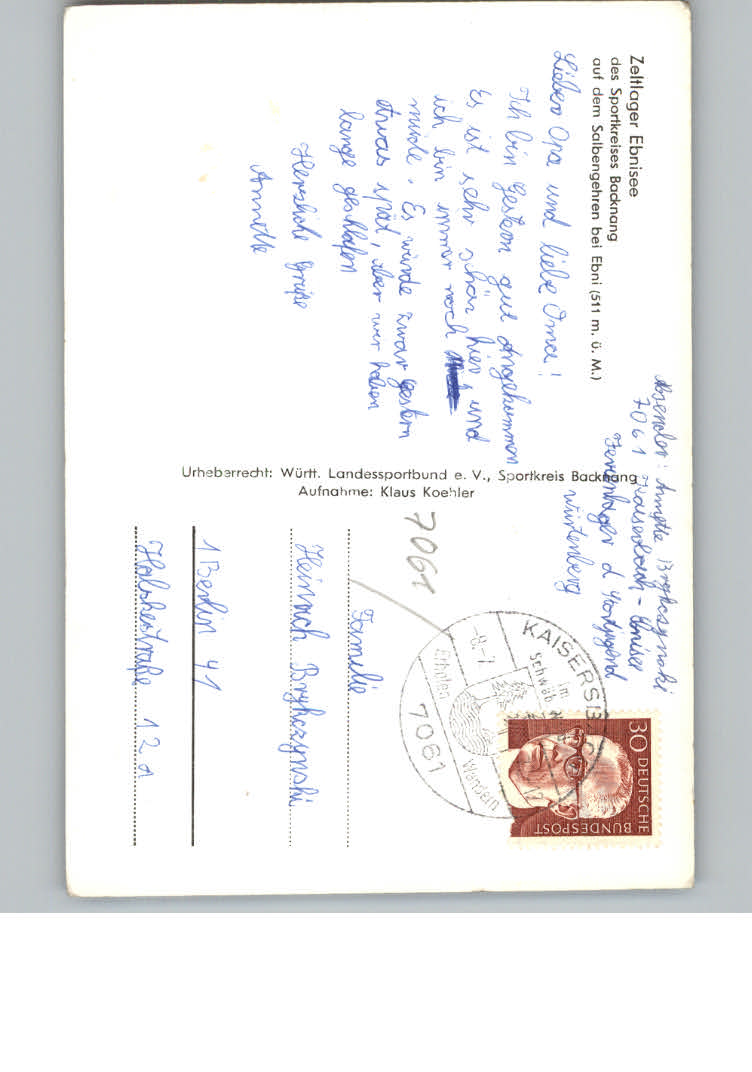 Zeltlager Ebnisee
des Sportkreises Backnang
auf dem Salbengehren bei Ebni (511 m. ü. M.)
Lieber Opa und liebe Oma!
Ich bin Gestern gut Angekommen
Es ist sehr schön hier und
ich bin immer noch
müde. Es wurde zwar gestern
etwas spät, aber wir haben
lange geschlafen
Herzliche Grüße
Annette
Urheberrecht: Württ. Landessportbund e. V., Sportkreis Backnang
Aufnahme: Klaus Koehler
Absender: Annette
7061 Kaisersbach - Ebnisee
Ferienlager d Sportjugend
Würtenberg
7061
30 DEUTSCHE
BUNDESPOST
KAISERSB
im
Schwäb
Erholen
Wandern
7061
Familie
Heinrich Brykczynski
1 Berlin 41
Halskestraße 12a